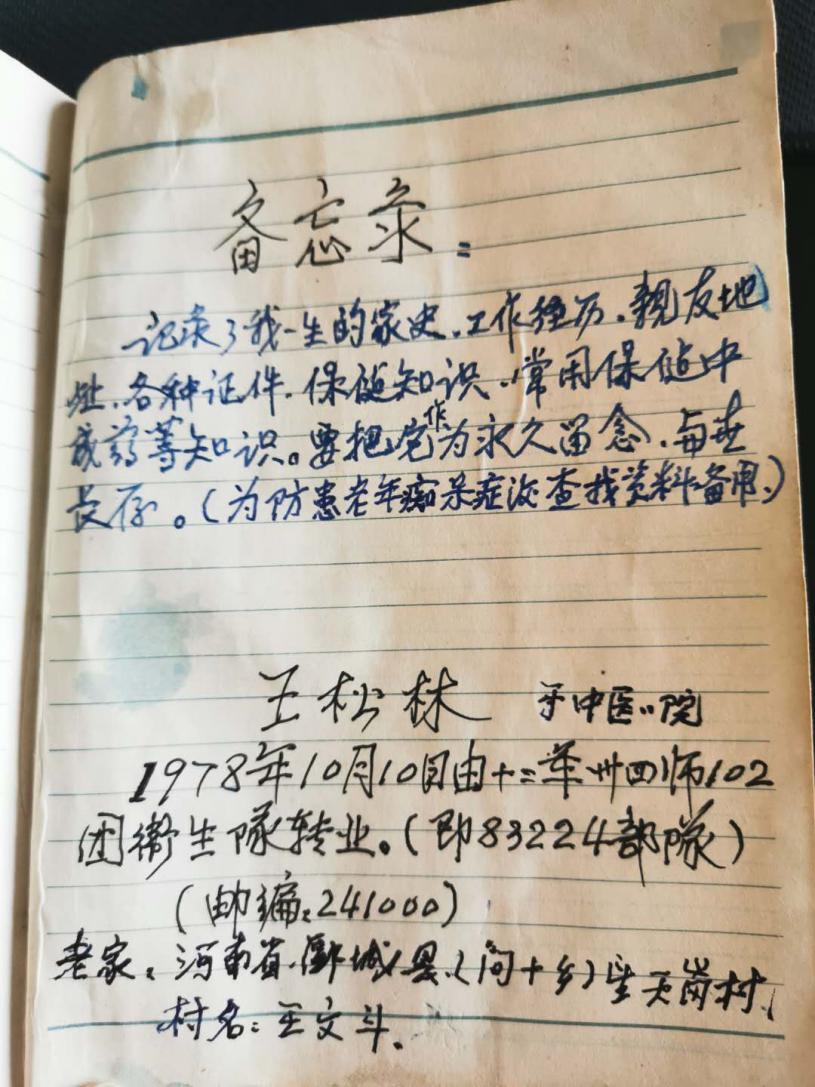 备忘录：
记录了我一生的家史.工作经历.亲友地
址.各种证件.保健知识.常用保健中
成药等知识。要把它作为永久留念.与世
长存。(为防患老年痴呆症后查找资料备用.)
王松林 于中医院
1978年10月10日由十二军卅四师102
团卫生队转业。(即83224部队)
(邮编:241000)
老家:河南省.郾城县.(问十乡) 天岗村.
村名:王文斗.